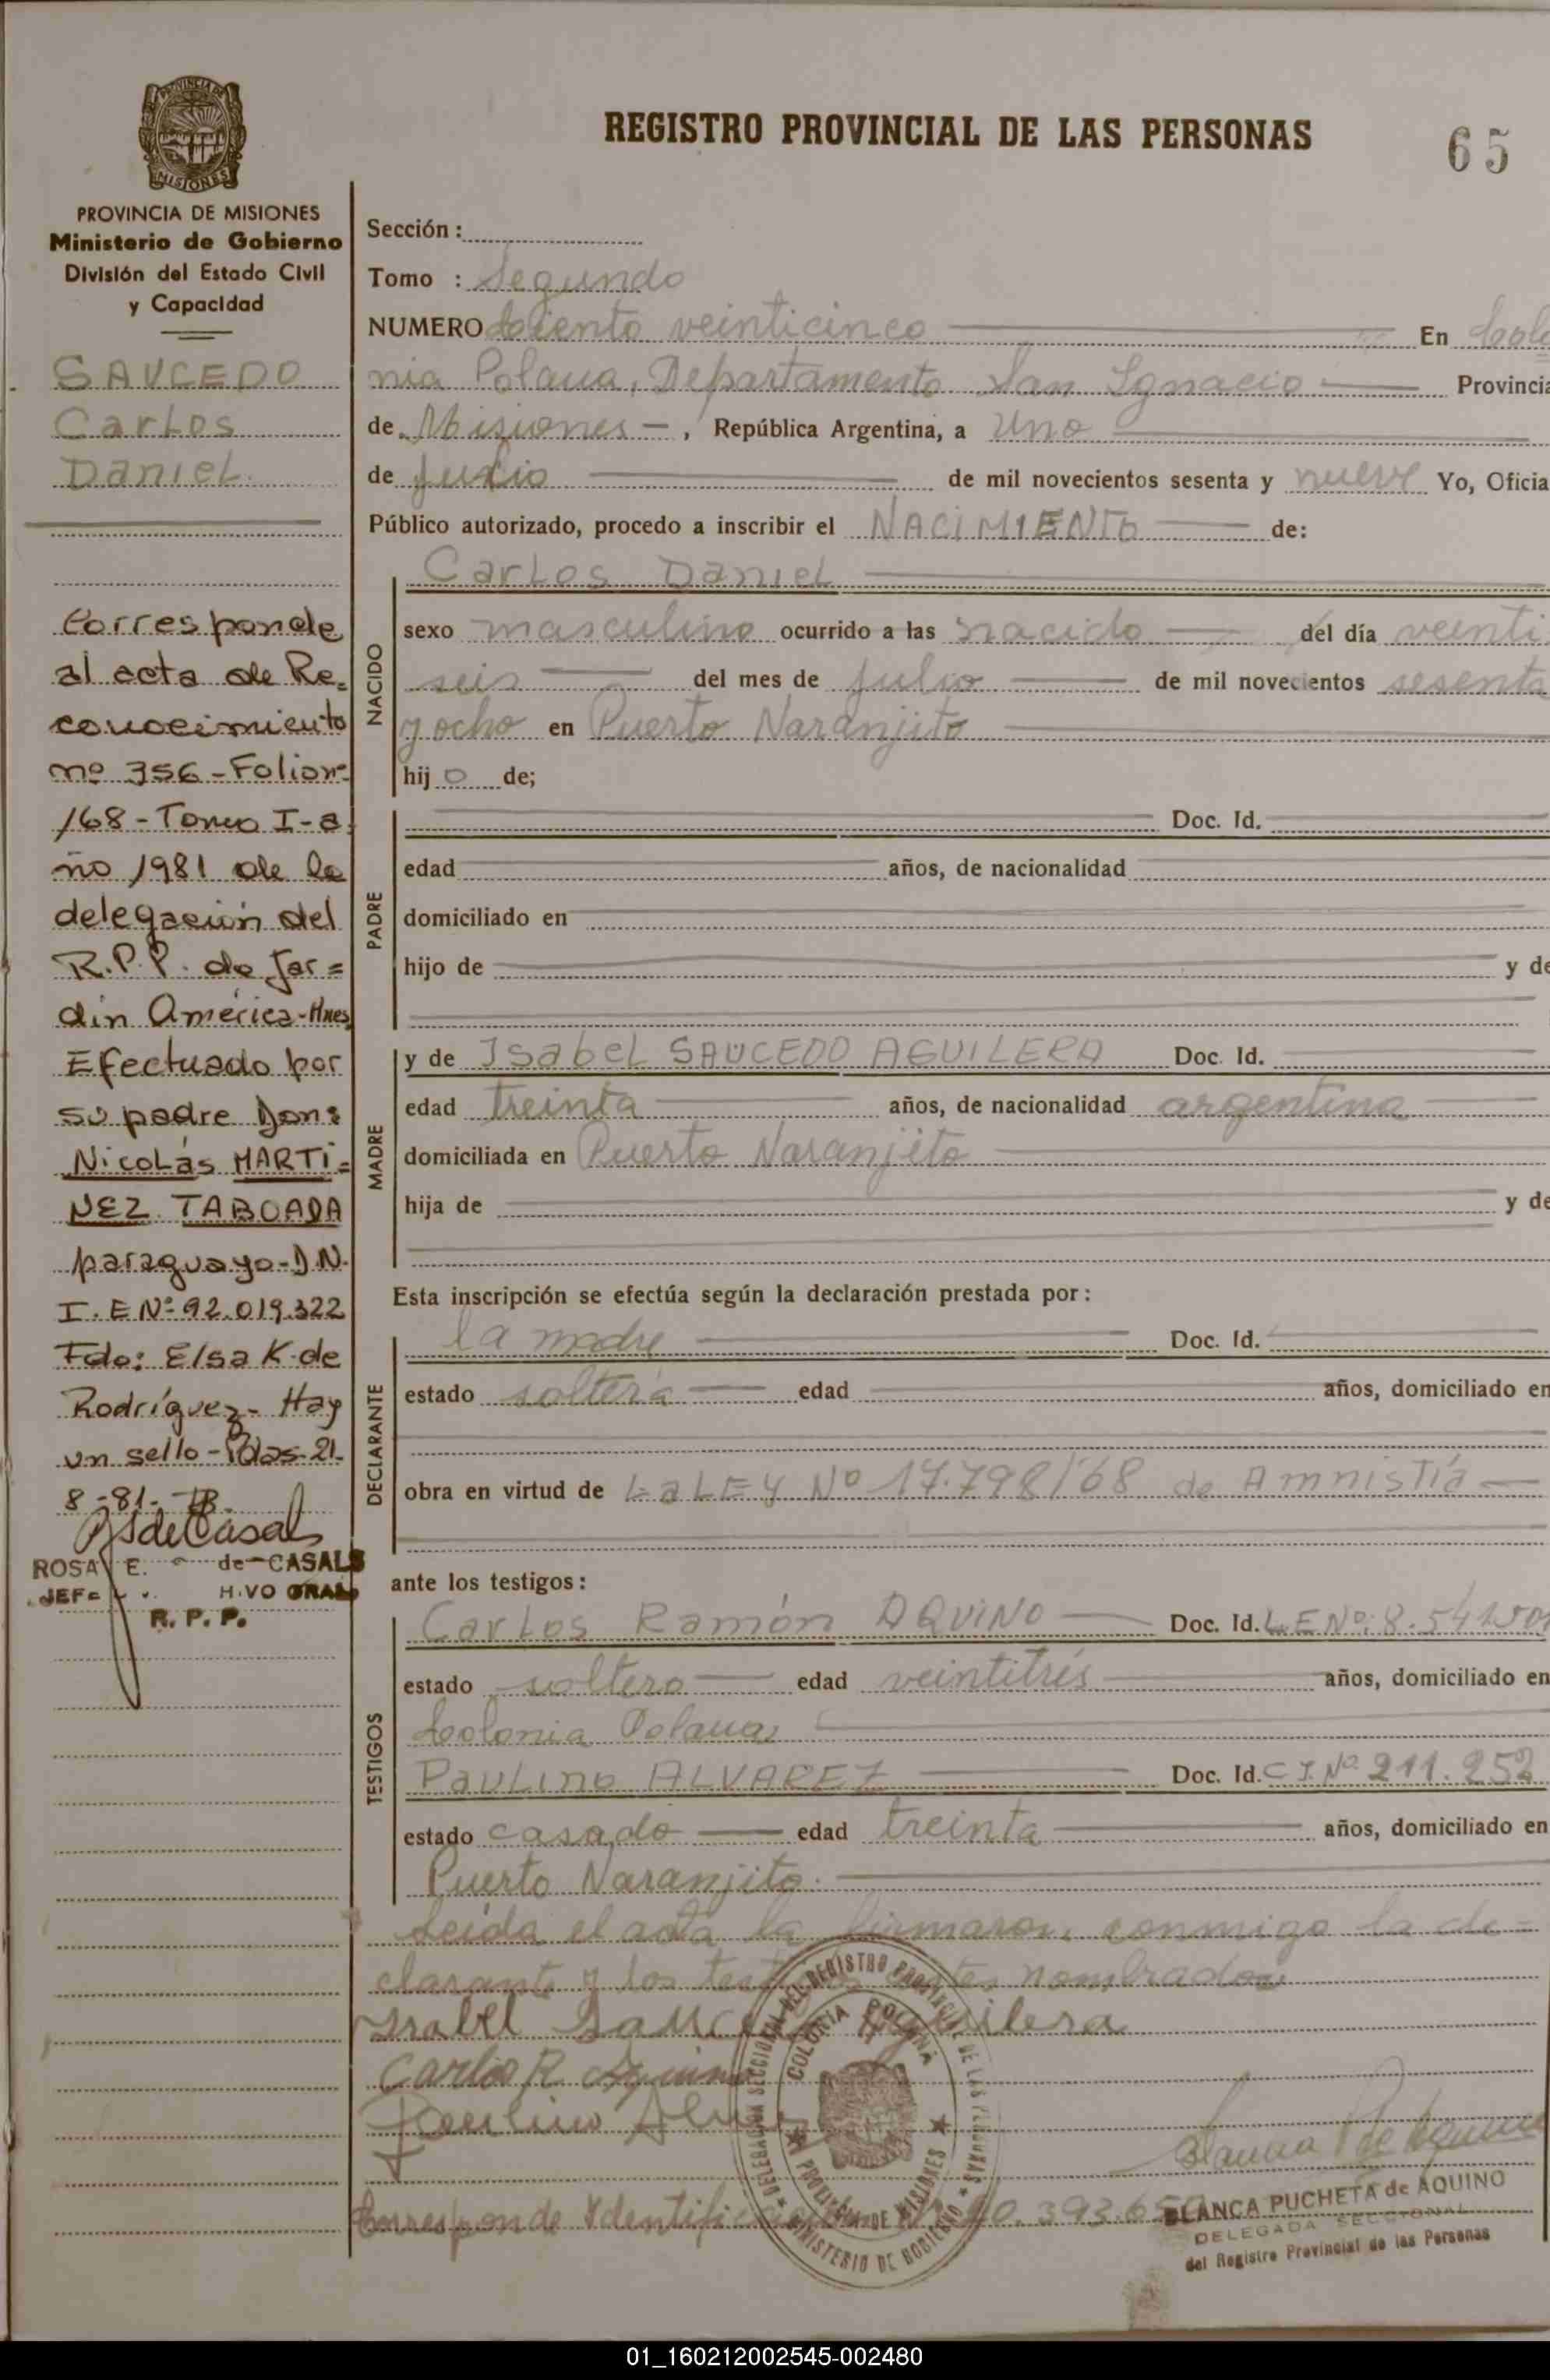 REGISTRO PROVINCIAL DE LAS PERSONAS
65
PROVINCIA DE MISIONES
Ministerio de Gobierno
División del Estado Civil
y Capacidad
SAUCEDO
Carlos
Daniel
Corresponde
al acta de Re=
conocimiento
nº 356 - Folio nº
168 - Tomo I - a
ño 1981 de la
delegación del
R.P.P. de Jar=
din América - Mnes
Efectuado por
su padre Don:
Nicolás MARTI=
NEZ TABOADA
paraguayo - D.N.
I. E Nº 92.019.322
Fdo: Elsa K. de
Rodríguez - Hay
un sello - Pdas 21-
8-81-
ROSA E. de CASALS
JEFE
R. P. P.
Sección :
Tomo : Segundo
NUMERO ciento veinticinco En Colo
nia Polana, Departamento San Ignacio Provincia
de Misiones - , República Argentina, a uno
de de mil novecientos sesenta y nueve Yo, Oficia
Público autorizado, procedo a inscribir el NACIMIENTO de:
NACIDO
Carlos Daniel
sexo masculino ocurrido a las nacido del día veinti
seis del mes de julio de mil novecientos sesenta
y ocho en Puerto Naranjito
hij o de;
PADRE
Doc. Id.
edad años, de nacionalidad
domiciliado en
hijo de y de
MADRE
y de Isabel SAUCEDO AGUILERA Doc. Id.
edad treinta años, de nacionalidad argentina
domiciliada en Puerto Naranjito
hija de y de
Esta inscripción se efectúa según la declaración prestada por :
DECLARANTE
la madre Doc. Id.
estado soltera edad años, domiciliado en
obra en virtud de La LEY Nº 17.798/68 de Amnistía
ante los testigos :
TESTIGOS
Carlos Ramón AQUINO Doc. Id. L.E Nº: 8.541.501
estado soltero edad veintitrés años, domiciliado en
Colonia Polana
Paulino ALVAREZ Doc. Id. C I. Nº 211.252
estado casado edad treinta años, domiciliado en
Puerto Naranjito.
Leída el acta la firmaron conmigo la de=
clarante y los testigos antes nombrados
Isabel Saucedo Aguilera
Carlos R. Aquino
Paulino
DELEGACION SECCIONAL DEL REGISTRO PROVINCIAL DE LAS PERSONAS
COLONIA POLANA
PROVINCIA DE MISIONES
MINISTERIO DE GOBIERNO
Corresponde Identificación
BLANCA PUCHETA de AQUINO
DELEGADA SECCIONAL
del Registro Provincial de las Personas
01_160212002545-002480